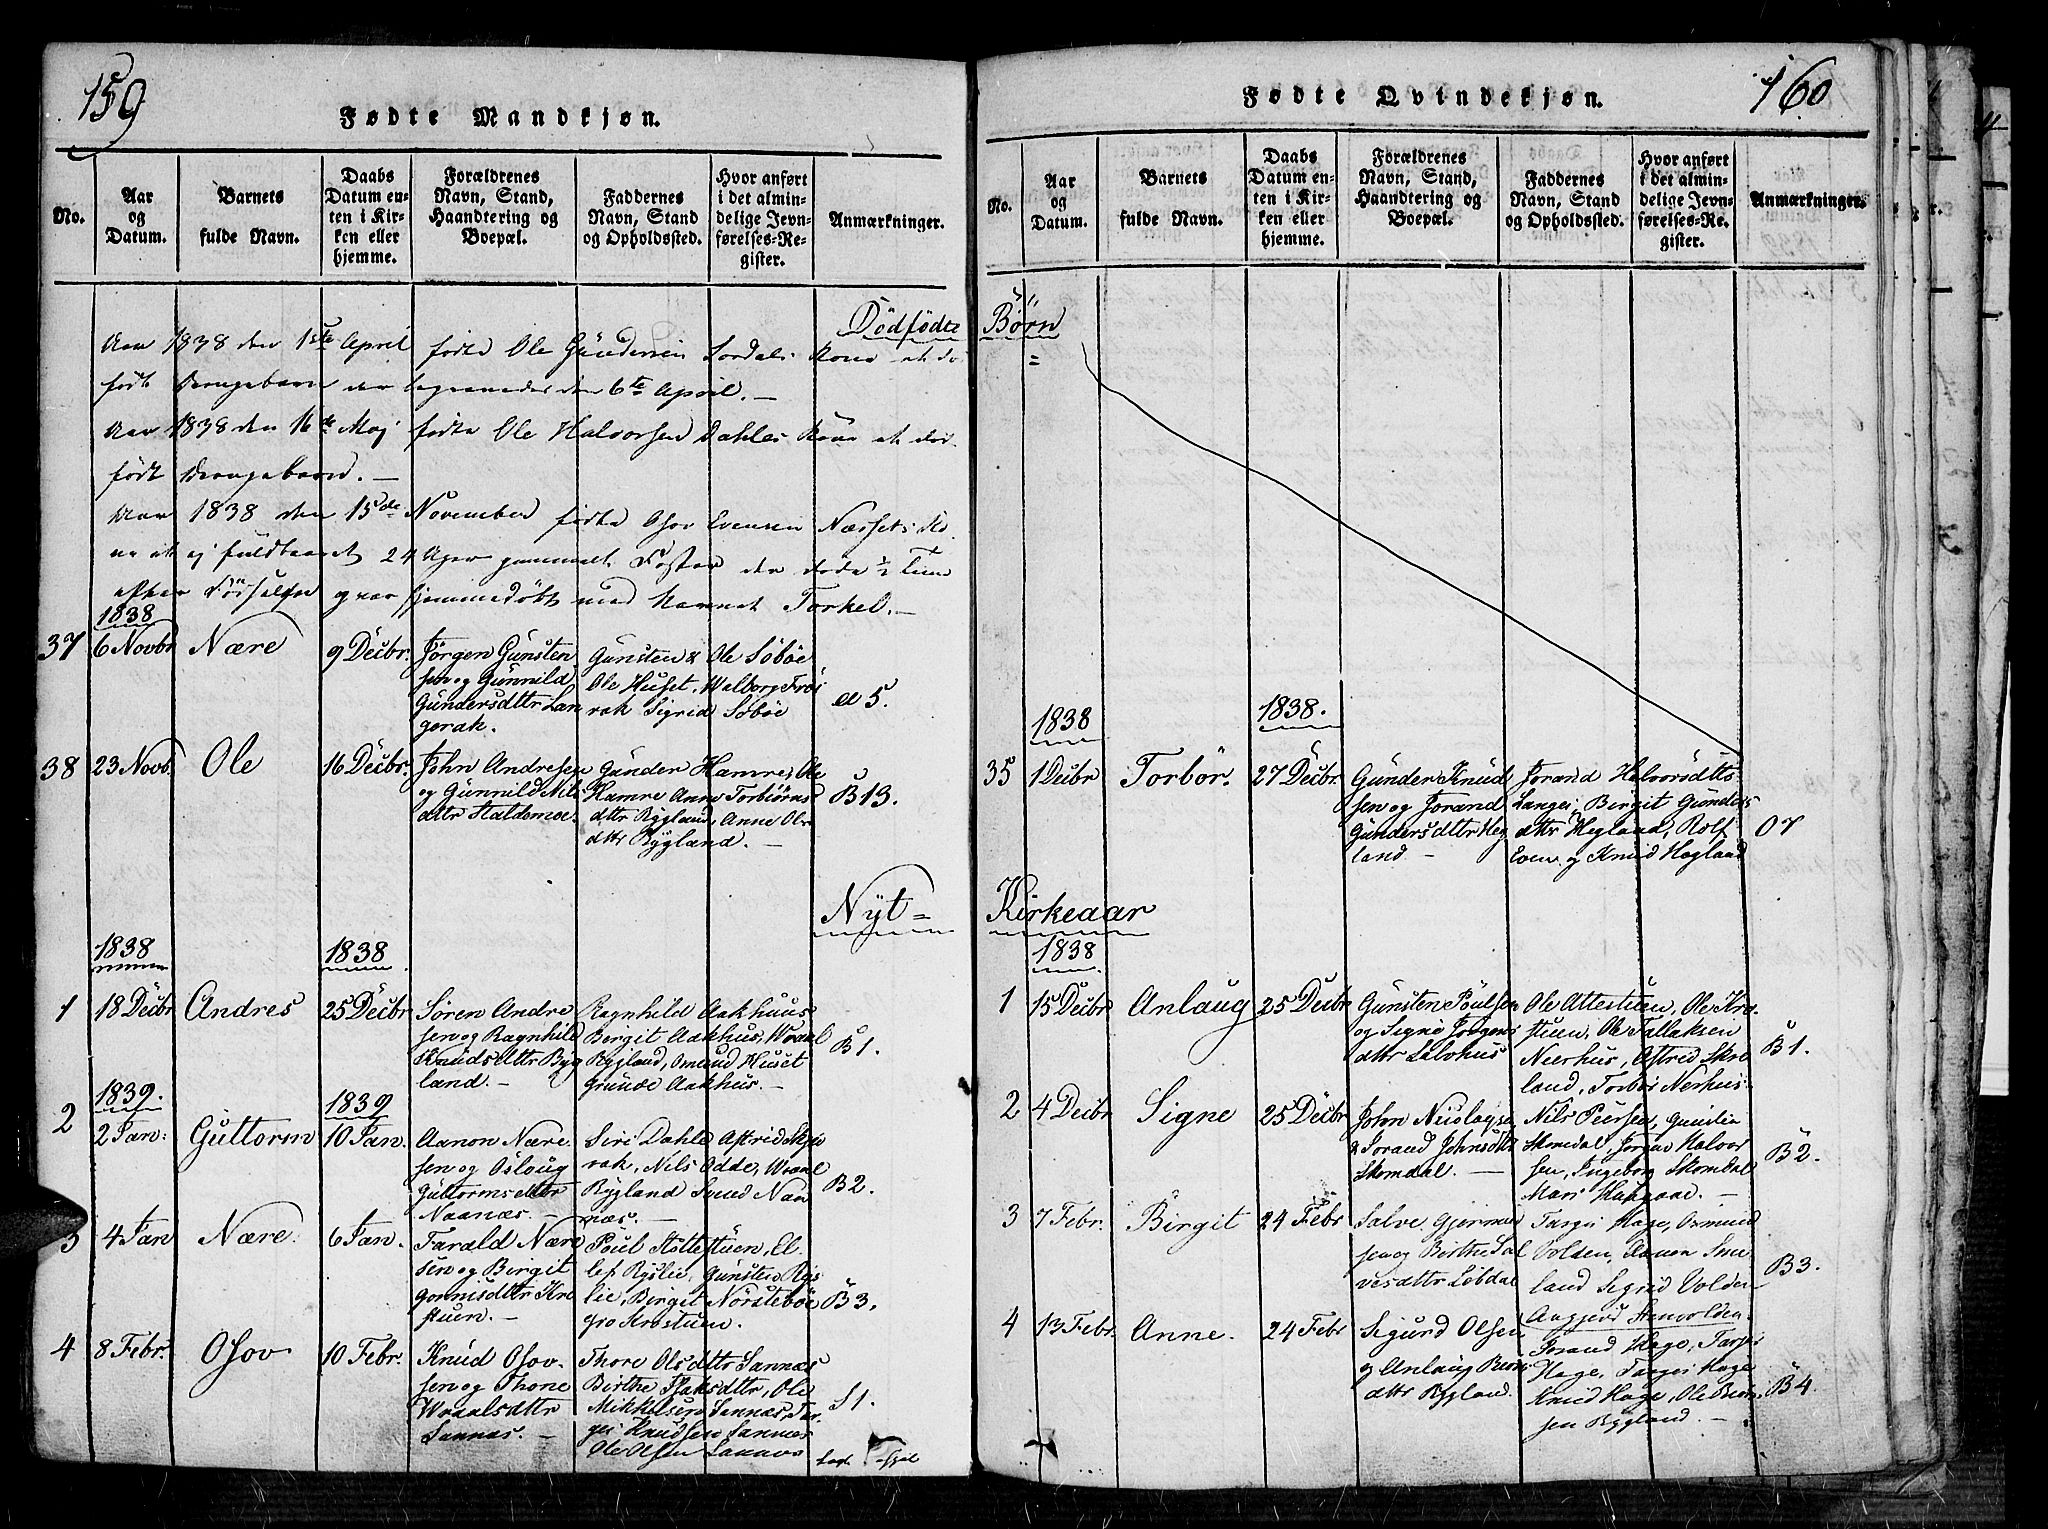 159
Fødte Mandkjøn.
No.
Aar
og
Datum.
Barnets
fulde Navn.
Daabs
Datum en-
ten i Kir-
ken eller
hjemme.
Forældrenes
Navn, Stand,
Haandtering og
Boepæl.
Faddernes
Navn, Stand
og Opholdssted.
Hvor anført
i det almin-
delige Jevn-
førelses-Re-
gister.
Anmærkninger.
Dödfödte
Aar 1838 den 1ste April fødte Ole Gündersen Sordals Kone et dö-
födt Drengebarn der begravedes den 6te April.
Aar 1838 den 16de Maj fødte Ole Halvorsen Dahles Kone et död-
födt Drengebarn.
Aar 1838 den 15de November fødte Osov Evensen Næssets Ko-
ne et ej fuldbaaret 24 Uger gammelt Foster der døde ½ Time
efter Födselen og var hjemmedöbt med Navnet Torkel.
1838
37 6 Novbr Nære 9 Decbr. Jörgen Günsten
sen og Gunnild
Gündersdttr Lan
gerak.
Günsten & Ole Söböe
Ole Huset, Walborg Frøi
rak Sigrid Söböe
B 5.
38 23 Novb. Ole 16 Decbr. John Andresen
og Gunnild Nils
dttr Haldemoe.
Günder Hamre, Ole
Hamre Anne Torbiörns
dttr Bÿgland, Anne Ols
dttr Bÿgland.
B 13.
Nÿt=
1838
1838
1 18 Decbr Andres 25 Decbr Sören Andre
sen og Ragnhild
Knudsdttr Byg
land.
Ragnhild Aakhuus
Birgit Aakhus, Wraal
Bygland, Omund Huset
Grunde Aakhus.
B 1.
1839.
1839
2 2 Jan: Guttorm 10 Jan. Aanon Nære
sen og Oslaug
Güttormsdttr
Naanæs.
Siri Dahle Astrid Skje
vrak, Nils Odde, Wraal
Bygland Svend Naa
næs.
B 2.
3 4 Jan Nære. 6 Jan. Tarald Nære
sen og Birgit
gonnisdttr Kro
stuen.
Poul Stöttestuen, El
lef Ryslie, Günsten Rys
lie, Birgit Nörsteböe
Gro Krostuen.
B 3.
4 8 Febr. Osov 10 Febr. Knud Osov-
sen og Thone
Wraalsdttr
Sannæs.
Thore Olsdttr Sannæs
Birthe Flaksdttr, Ole
Mikkelsen Sannæs, Tar
gie Knudsen Sannæs
Ole Olsen Sannæs
S 1.
160
Fødte Qvindekjøn.
No.
Aar
og
Datum.
Barnets
fulde Navn.
Daabs
Datum en-
ten i Kir-
ken eller
hjemme.
Forældrenes
Navn, Stand,
Haandtering og
Boepæl.
Faddernes
Navn, Stand,
og Opholdssted.
Hvor anført
i det almin-
delige Jevn-
førelses-Re-
gister.
Anmærkninger.
Börn
=
1838
1838.
35 1 Decbr Torbör. 27 Decbr. Günder Knud
sen og Jorand
Gündersdttr Heg
land.
Jorand Halvorsdttr
Langei, Birgit Günders
dttr Hegland, Rolf
Even. og Knud Hegland
O 7
Kirkeaar
1838
1 15 Decbr Anlaug 25 Decbr Günsten Poulsen
og Signe Jörgens
dttr Lalvhus
Ole Attestuen, Ole Kro-
stuen, Ole Tallaksen
Nierhus, Astrid Sko
land, Torbör Nerhus.
B 1.
2 4 Decbr Signe 25 Decbr John Niulaysen
& Jorand Johnsdttr
Skomdal.
Nils Peersen, Gunstein
Skomedal, Jorgen Halvor
sen, Ingeborg Skomdal
Mari Haugaae.
B 2.
3 7 Febr. Birgit 24 Febr Salve Gjermun
sen og Birthe Sal
vesdttr Lobdal
Targie Hage, Ormund
Volden, Aanon Smu
land Sigrid Volden
B 3.
4 13 Febr. Anne. 24 Febr Sigurd Olsen
og Anlaug Biörns
dttr Bygland.
Angjerd Stenvolden
Jorand Hage, Tarje
Hage, Targei Hage
Knud Hage, Ole Biörn
sen Bygland.
B 4.